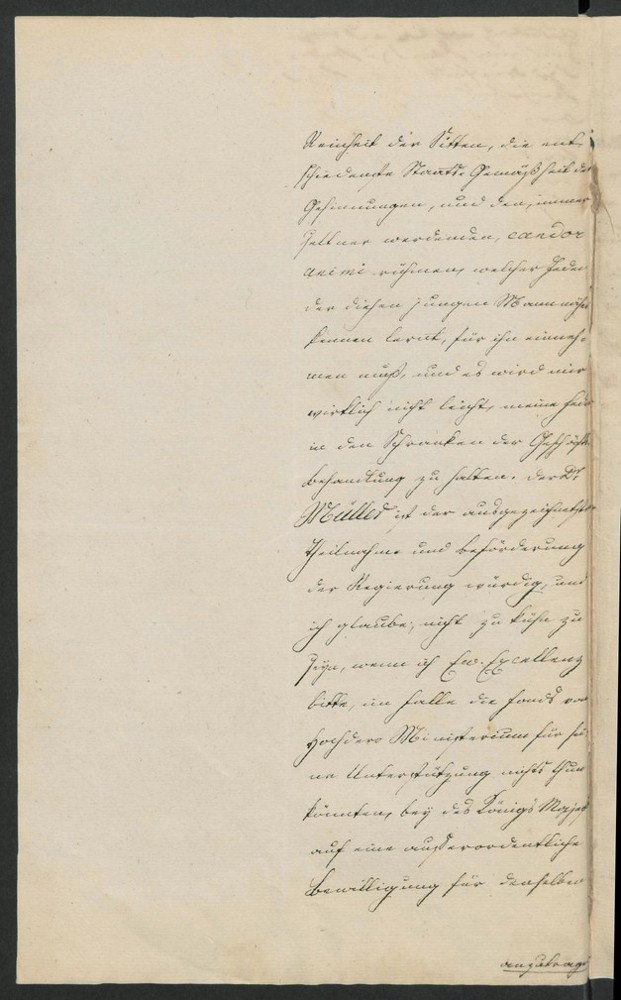 Reinheit der Sitten, die ent-
schiedenste Staats-Gemäßheit der
Gesinnungen, und den, immer
seltner werdenden, candor
animi rühmen, welcher Jeden
der diesen jungen Mann näher
kennen lernt, für ihn einneh-
men muß, und es wird mir
wirklich nicht leicht, meine Feder
in den Schranken der Geschäfts-
behandlung zu halten. Der Dr.
Müller ist der ausgezeichnetsten
Theilnahme und Beförderung
der Regierung würdig, und
ich glaube, nicht zu kühn zu
seyn, wenn ich Ew. Excellenz
bitte, im Falle die Fonds von
Hochdero Ministerium für sei-
ne Unterstützung nichts thun
könnten, bey des Königs Majest
auf eine außerordentliche
Bewilligung für denselben
anzutrag